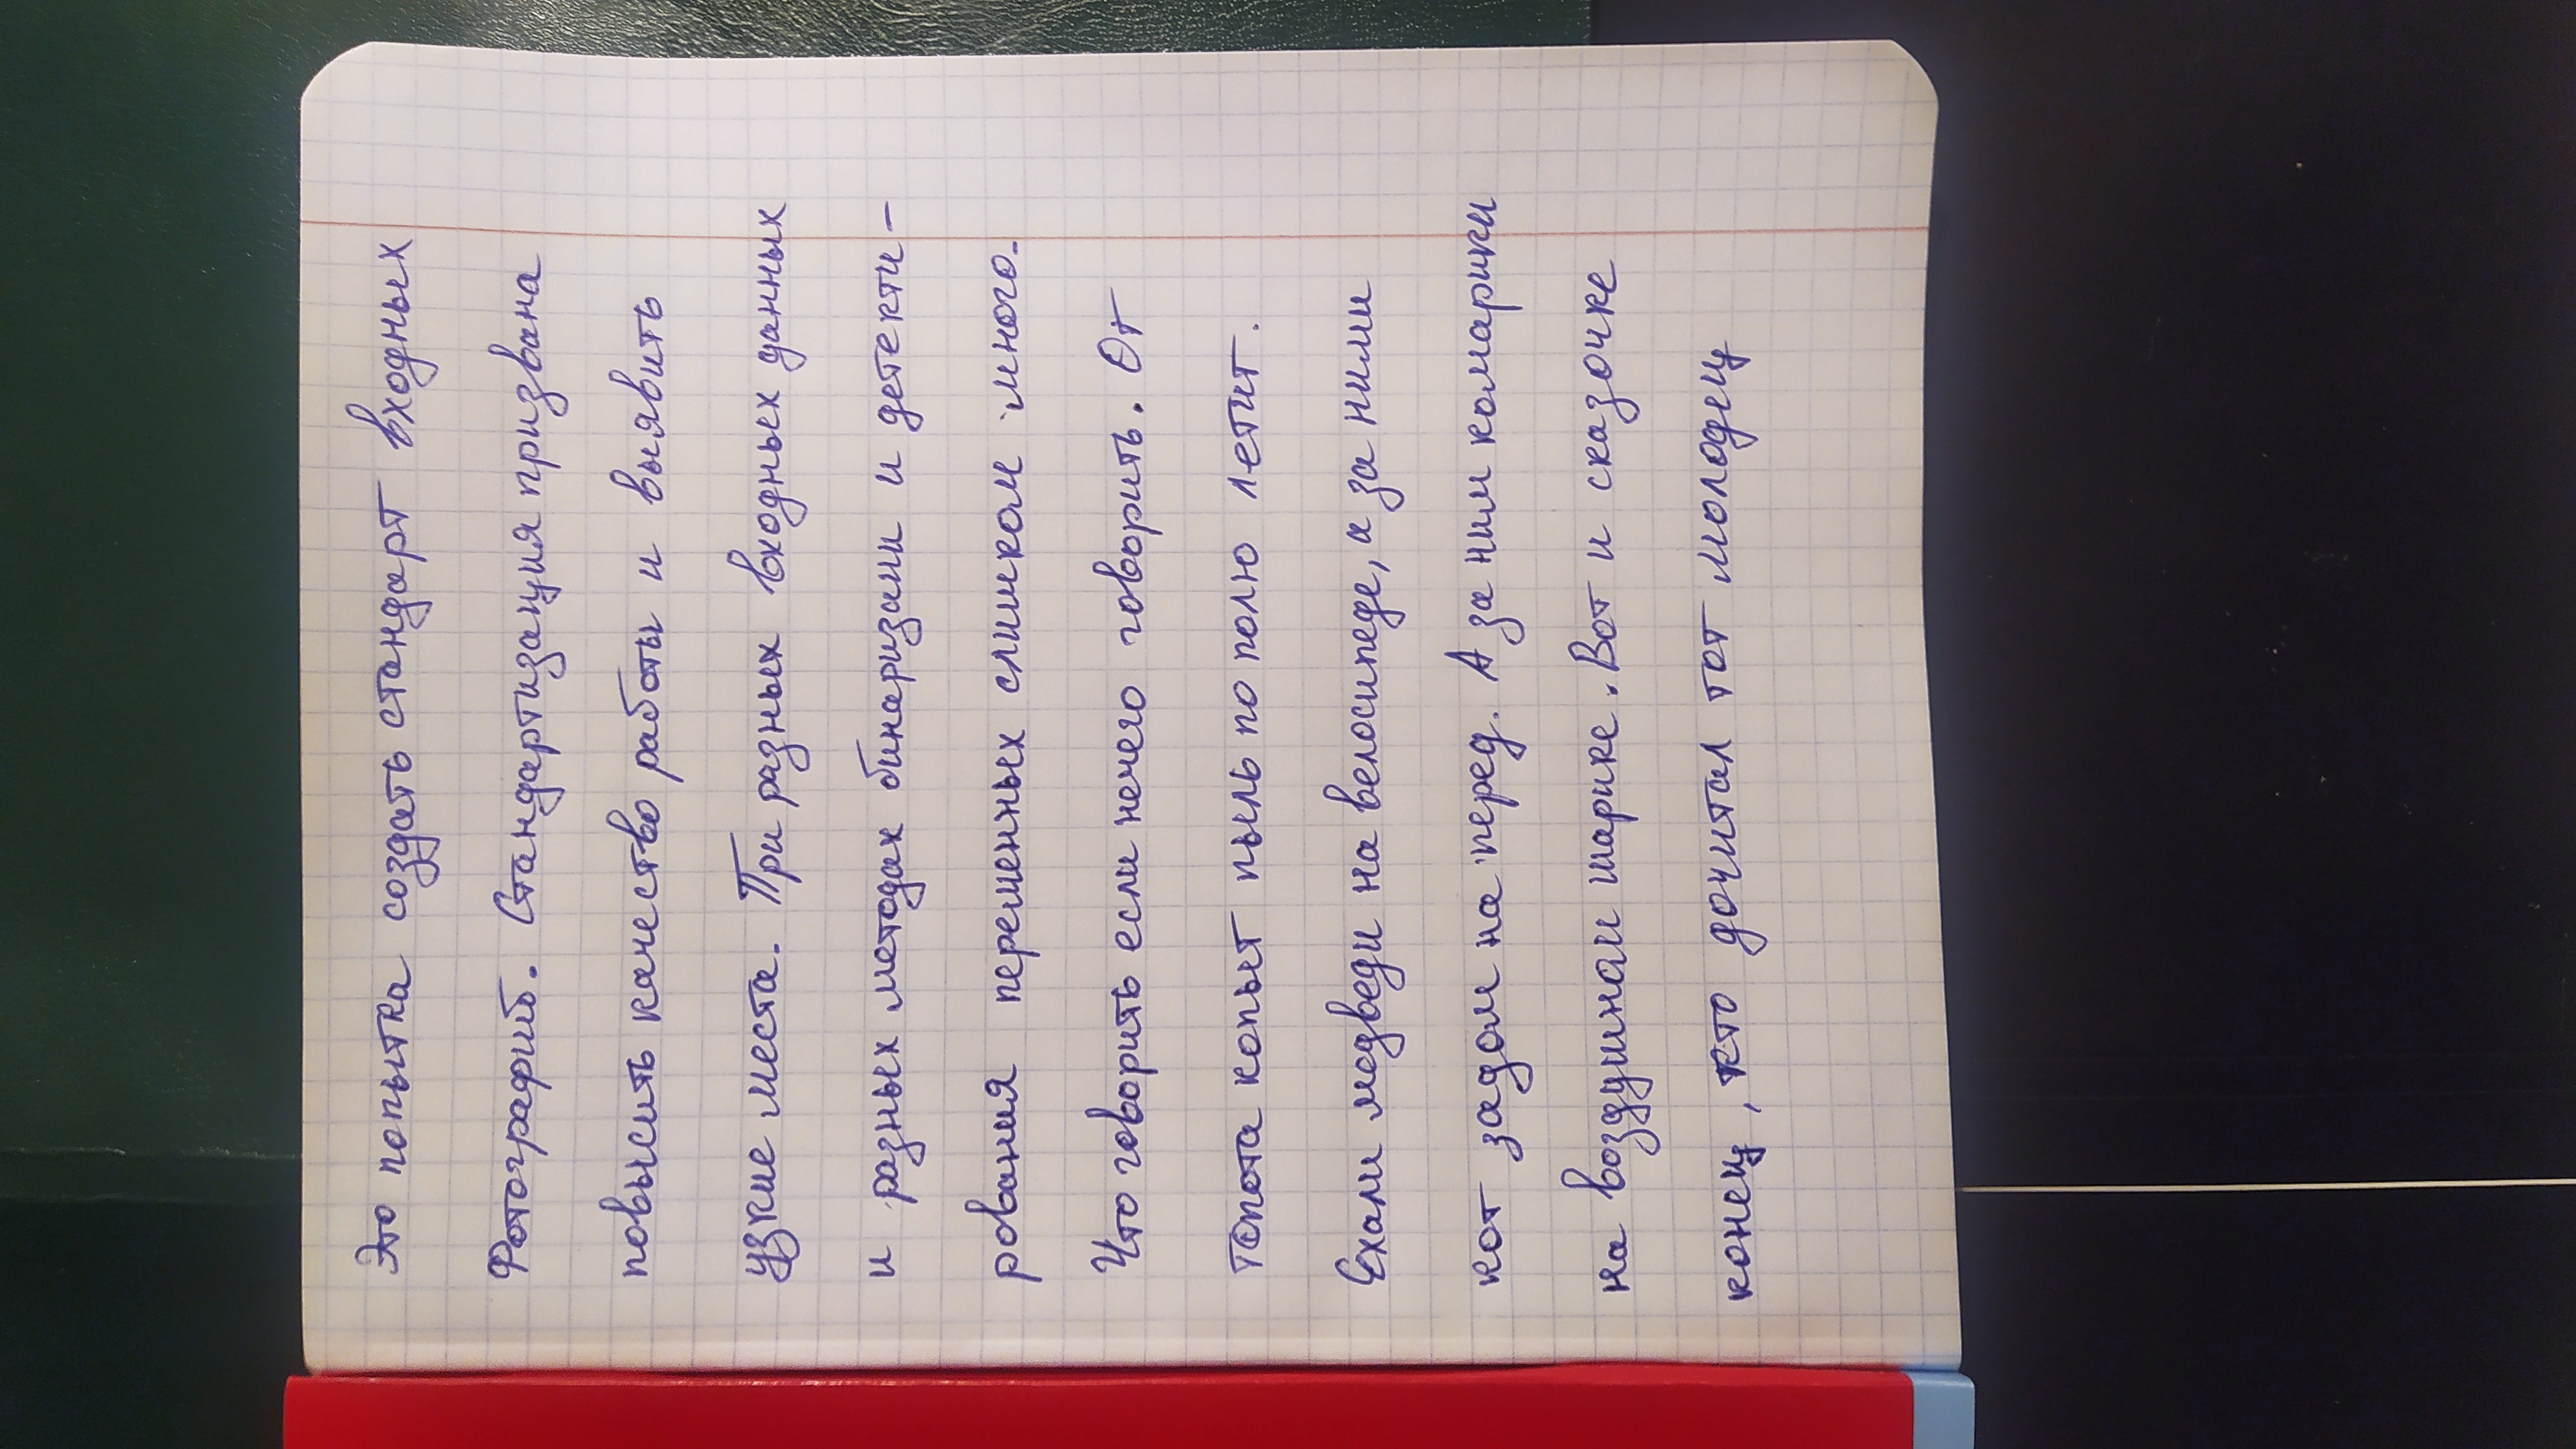 Это попытка создать стандарт входных
Фотографий. Стандартизация призвана
повысить качество работы и выявить
узкие места. При разных входных данных
и разных методах бинаризаии и детекти-
рования переменных слишком много.
Что говорить если нечего говорить. От
топота копыт пыль по полю летит.
Ехали медведи на велосипеде, а за ними
кот задом на перед. А за ним комарики
на воздушном шарике. Вот и сказочке
конец, кто дочитал тот молодец